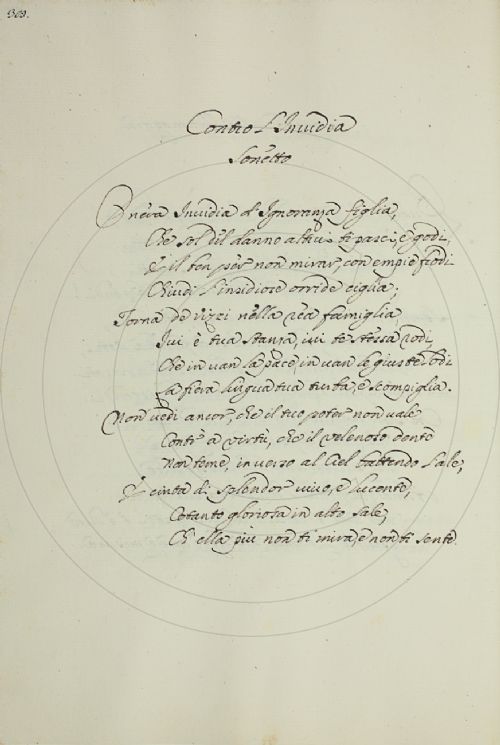 309.
Contro L'Invidia
Sonetto
O rea Invidia d'Ignoranza figlia,
Che sol dil danno altrui ti pasci, e godi,
E il ben per non mirar, con empie frodi
Chiudi l'insidiose orride ciglia;
Torna de vizzi nella rea famiglia
Ivi è tua stanza, ivi te stessa rodi,
Che in van la pace, in van le giuste lodi
La fiera lingua tua turba, e scompiglia.
Non vedi ancor, che il tuo poter non vale
Contr' a virtù, che il velenoso dente
Non teme, in verso al Ciel battendo l'ale;
E cinta di splendor vivo, e lucente,
Cotanto gloriosa in alto sale,
Ch' ella piu non ti mira, e non ti sente.